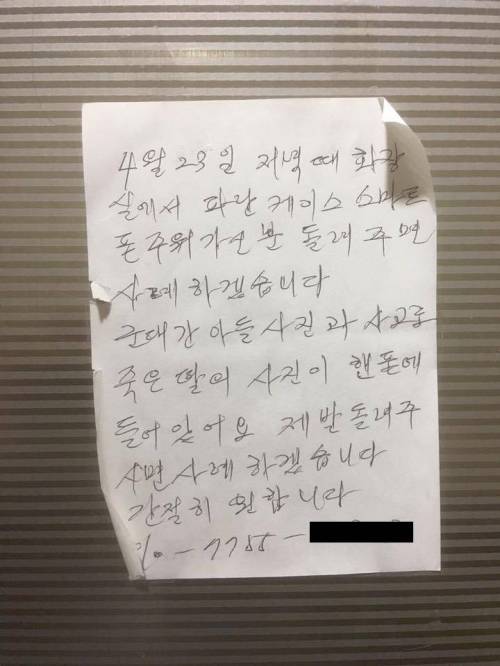 4월 23일 저녁때 화장
실에서 파란 케이스 스마트
폰 주워가신분 돌려주면
사례하겠습니다
군대간 아들사진과 사고로
죽은 딸의 사진이 핸폰에
들어있어요 제발돌려주
시면사례하겠습니다
간절히 원합니다
010-7755-